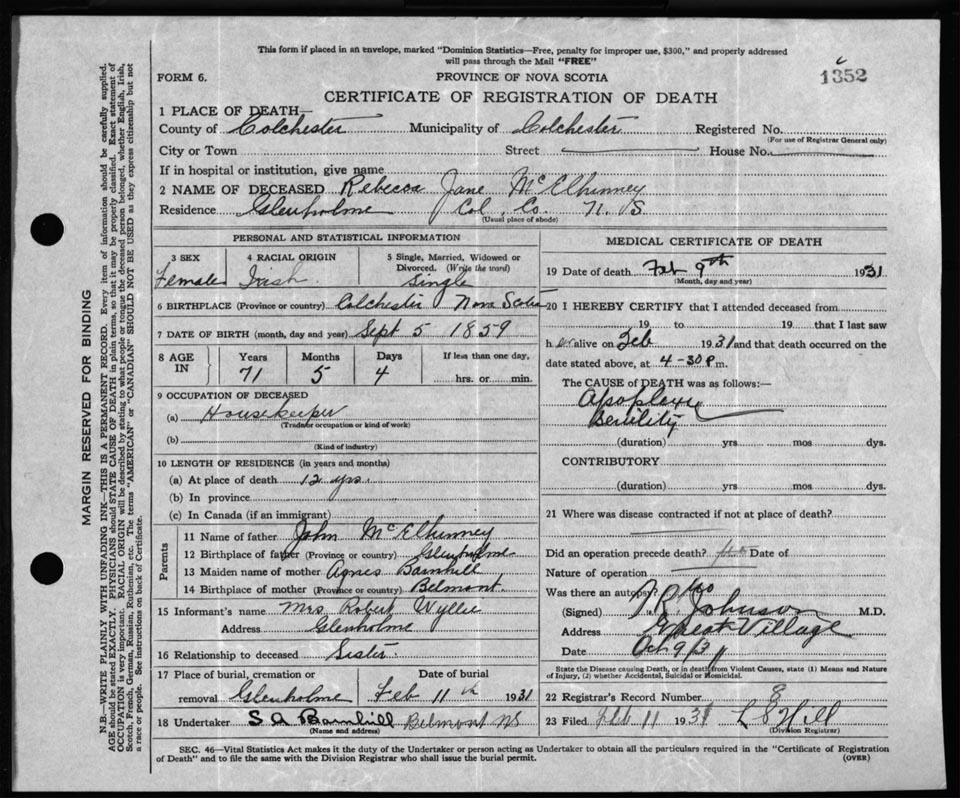 This form if placed in an envelope, marked "Dominion Statistics—Free, penalty for improper use, $300," and properly addressed
will pass through the Mail "FREE"
FORM 6.
PROVINCE OF NOVA SCOTIA
1352
CERTIFICATE OF REGISTRATION OF DEATH
1 PLACE OF DEATH—
County of Colchester Municipality of Colchester Registered No.
(For use of Registrar General only)
City or Town Street House No.
If in hospital or institution, give name
2 NAME OF DECEASED Rebecca Jane McElhinney
Residence Glenholme Col. Co. N.S
(Usual place of abode)
PERSONAL AND STATISTICAL INFORMATION
3 SEX
Female
4 RACIAL ORIGIN
Irish
5 Single, Married, Widowed or
Divorced. (Write the word)
Single
6 BIRTHPLACE (Province or country) Colchester Nova Scotia
7 DATE OF BIRTH (month, day and year) Sept 5 1859
8 AGE
IN
Years
71
Months
5
Days
4
If less than one day,
hrs. or min.
9 OCCUPATION OF DECEASED
(a) Housekeeper
(Trade or occupation or kind of work)
(b)
(Kind of industry)
10 LENGTH OF RESIDENCE (in years and months)
(a) At place of death 12 yrs.
(b) In province
(c) In Canada (if an immigrant)
Parents
11 Name of father John McElhinney
12 Birthplace of father (Province or country) Glenholme
13 Maiden name of mother Agnes Barnhill
14 Birthplace of mother (Province or country) Belmont.
15 Informant's name Mrs Robert Wyllie
Address Glenholme
16 Relationship to deceased Sister
17 Place of burial, cremation or
removal Glenholme
Date of burial
Feb 11th 1931
18 Undertaker S A Barnhill Belmont NS
(Name and address)
MEDICAL CERTIFICATE OF DEATH
19 Date of death Feb 9th 1931
(Month, day and year)
20 I HEREBY CERTIFY that I attended deceased from
19 to 19 that I last saw
h er alive on Feb 1931 and that death occurred on the
date stated above, at 4-30 P m.
The CAUSE of DEATH was as follows:—
Apoplexy
(duration) yrs mos dys.
CONTRIBUTORY
(duration) yrs. mos. dys.
21 Where was disease contracted if not at place of death?
Did an operation precede death? No Date of
Nature of operation
Was there an autopsy? No
(Signed) Johnson M.D.
Address Great Village
Date Oct 9/31
State the Disease causing Death, or in death from Violent Causes, state (1) Means and Nature
of Injury, (2) whether Accidental, Suicidal or Homicidal.
22 Registrar's Record Number 8
23 Filed Feb 11 1931 L S Hill
(Division Registrar)
SEC. 46—Vital Statistics Act makes it the duty of the Undertaker or person acting as Undertaker to obtain all the particulars required in the "Certificate of Registration
of Death" and to file the same with the Division Registrar who shall issue the burial permit.
(OVER)
MARGIN RESERVED FOR BINDING
N.B.—WRITE PLAINLY WITH UNFADING INK—THIS IS A PERMANENT RECORD. Every item of information should be carefully supplied.
AGE should be stated EXACTLY. PHYSICIANS should STATE CAUSE OF DEATH in plain terms, so that it may be properly classified. Exact statement of
OCCUPATION is very important. RACIAL ORIGIN will be described by stating to what people or tongue the deceased person belonged, whether English, Irish,
Scotch, French, German, Russian, Ruthenian, etc. The terms "AMERICAN" or "CANADIAN" SHOULD NOT BE USED as they express citizenship but not
a race or people. See instructions on back of Certificate.